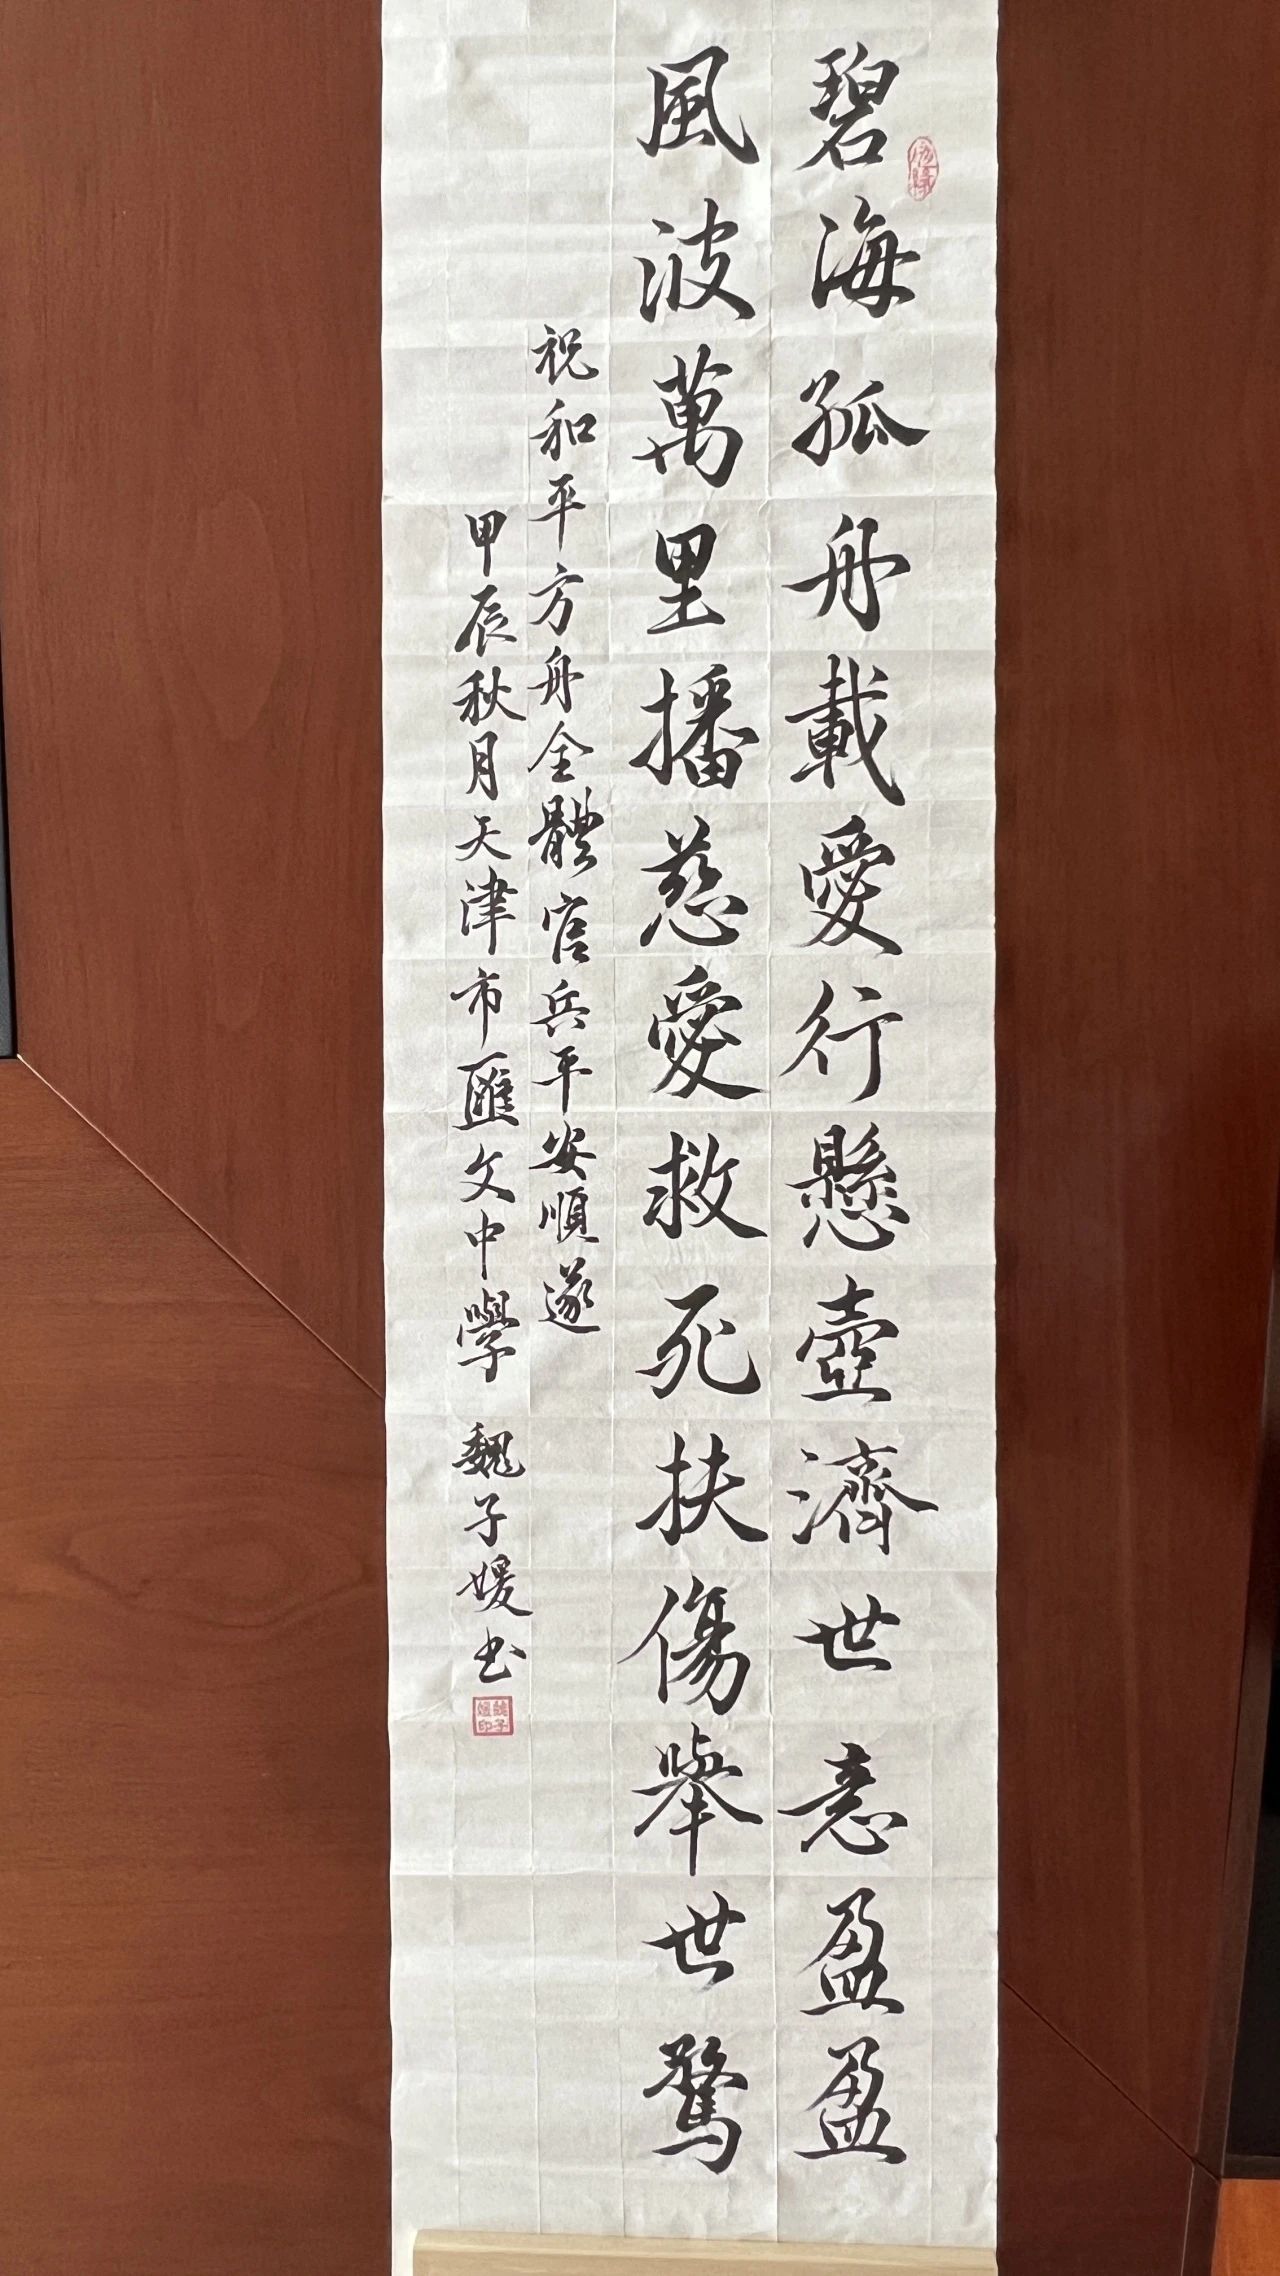 碧海孤舟載愛行懸壺濟世意盈盈
風波萬里播慈愛救死扶傷舉世驚
祝和平方舟全體官兵平安順遂
甲辰秋月天津市匯文中學 魏子媛书
魏子媛印